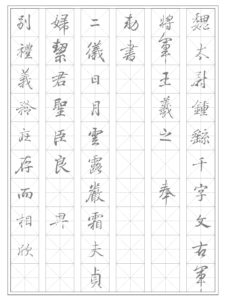 魏太尉鍾繇千字文右軍
將軍王羲之奉
勑書
二儀日月雲露嚴霜夫貞
婦絜君聖臣良
別禮義矜莊存而相欣